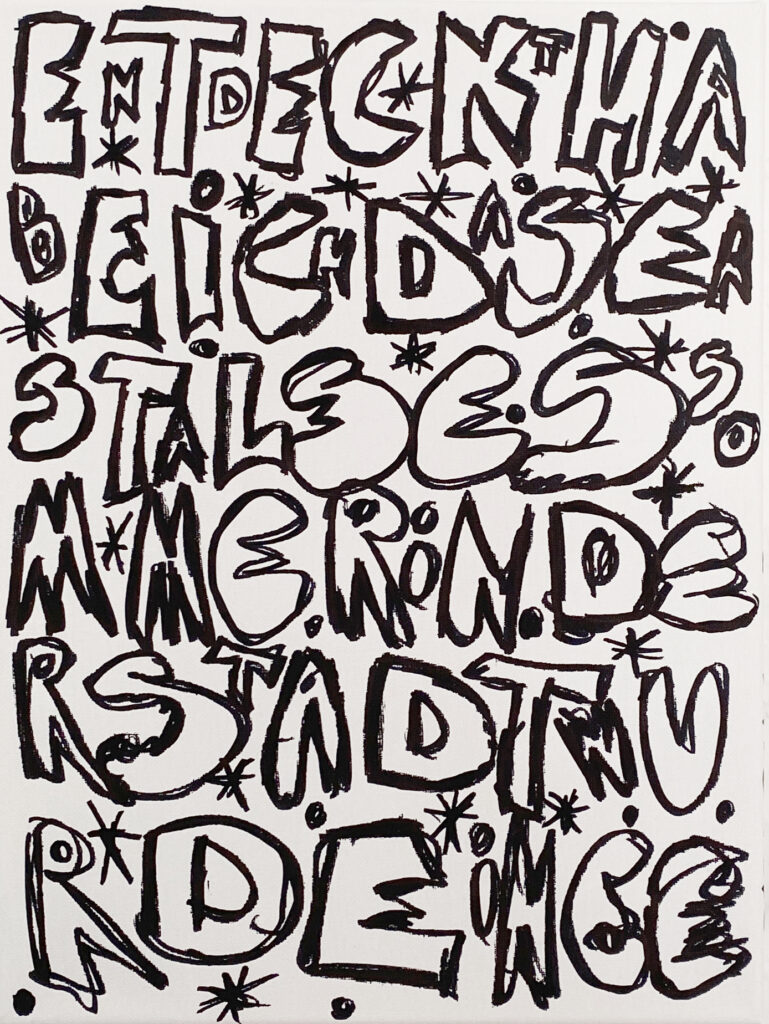 ENTDECKTHA
BEICHDASER
STALSESSO
MMERINDE
RSTADTWU
RDEINEE